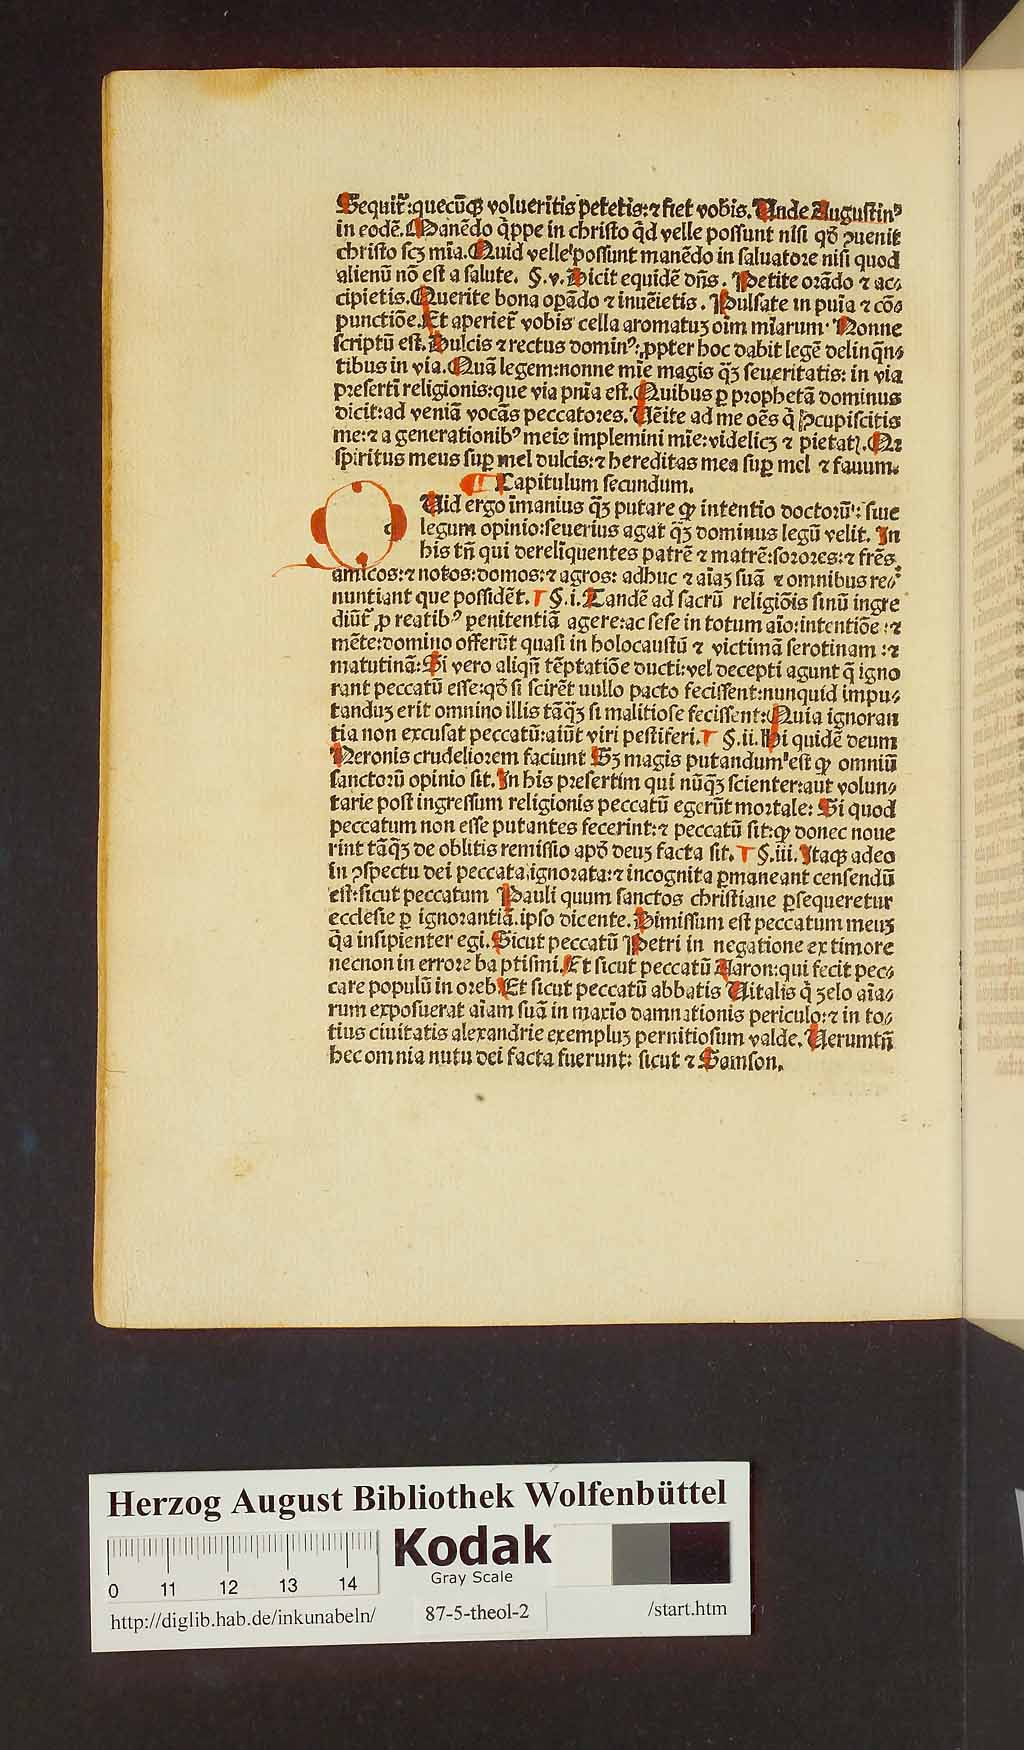 Sequit᷑:quecũq; volueritis petetis:⁊ fiet vobis. Unde Augustinꝰ
in eodē. Manẽdo q̇ppe in christo q̇d velle possunt nisi qđ ꝯuenit
christo scʒ mīa. Quid velle possunt manẽdo in saluatore nisi quod
alienũ nõ est a salute. §.v. Dicit equidẽ dñs. Petite orãdo ⁊ ac⸗
cipietis. Querite bona opãdo ⁊ inuẽietis. Pulsate in pnĩa ⁊ cõ⸗
punctiõe. Et aperiet᷑ vobis cella aromatuʒ oĩm mĩarum. Nonne
scriptũ est. Dulcis ⁊ rectus dominꝰ: ꝓpter hoc dabit legẽ delinq̃n⸗
tibus in via. Quã legem:nonne mĩe magis q̃ʒ seueritatis: in via
presertĩ religionis:que via pnĩa est. Quibus ꝑ prophetã dominus
dicit:ad veniã vocãs peccatores. Uẽite ad me oẽs q̇ ꝯcupiscitis
me:⁊ a generationibꝰ meis implemini mĩe:videlicʒ ⁊ pietatꝭ. Nã
spiritus meus suꝑ mel dulcis:⁊ hereditas mea suꝑ mel ⁊ fauum.
¶ Capitulum secundum.
q
Uid ergo ĩmanius q̃ʒ putare ꝙ intentio doctorũ: siue
legum opinio:seuerius agat q̃ʒ dominus legũ velit. In
his tñ qui derelĩquentes patrẽ ⁊ matrẽ:sorores:⁊ frẽs
amicos:⁊ notos:domos:⁊ agros: adhuc ⁊ aĩaʒ suã ⁊ omnibus re⸗
nuntiant que possidẽt. §.i. Tandẽ ad sacrũ religiõis sinũ ingre
diũt᷑ ꝓ reatibꝰ penitentiã agere:ac sese in totum aĩo:intentiõe:⁊
mẽte:domino offerũt quasi in holocaustũ ⁊ victimã serotinam:⁊
matutinã: Si vero aliqñ tẽptatiõe ducti:vel decepti agunt q̃ igno
rant peccatũ esse:qđ si scirẽt nullo pacto fecissent:nunquid impu⸗
tanduʒ erit omnino illis tãq̃ʒ si malitiose fecissent: Quia ignoran
tia non excusat peccatũ:aiũt viri pestiferi. §.ii. Hi quidẽ deum
Neronis crudeliorem faciunt Sʒ magis putandum est ꝙ omniũ
sanctorũ opinio sit. In his presertim qui nũq̃ʒ scienter:aut volun⸗
tarie post ingressum religionis peccatũ egerũt mortale: Si quod
peccatum non esse putantes fecerint:⁊ peccatũ sit:ꝙ donec noue
rint tãq̃ʒ de oblitis remissio apđ deuʒ facta sit. §.iii. Itaq; adeo
in ꝯspectu dei peccata ignorata:⁊ incognita ꝑmaneant censendũ
est:sicut peccatum Pauli quum sanctos christiane ꝑsequeretur
ecclesie ꝑ ignorantiã.ipso dicente. Dimissum est peccatum meuʒ
q̃a insipienter egi. Sicut peccatũ Petri in negatione ex timore
necnon in errore baptismi. Et sicut peccatũ Aaron:qui fecit pec⸗
care populũ in oreb. Et sicut peccatũ abbatis Uitalis q̇ ʒelo aĩa⸗
rum exposuerat aĩam suã in maxĩo damnationis periculo:⁊ in to⸗
tius ciuitatis alexandrie exempluʒ pernitiosum valde. Uerumtñ
hec omnia nutu dei facta fuerunt: sicut ⁊ Samson.
Herzog August Bibliothek Wolfenbüttel
Kodak
Gray Scale
0 11 12 13 14
http://diglib.hab.de/inkunabeln/ 87-5-theol-2 /start.htm